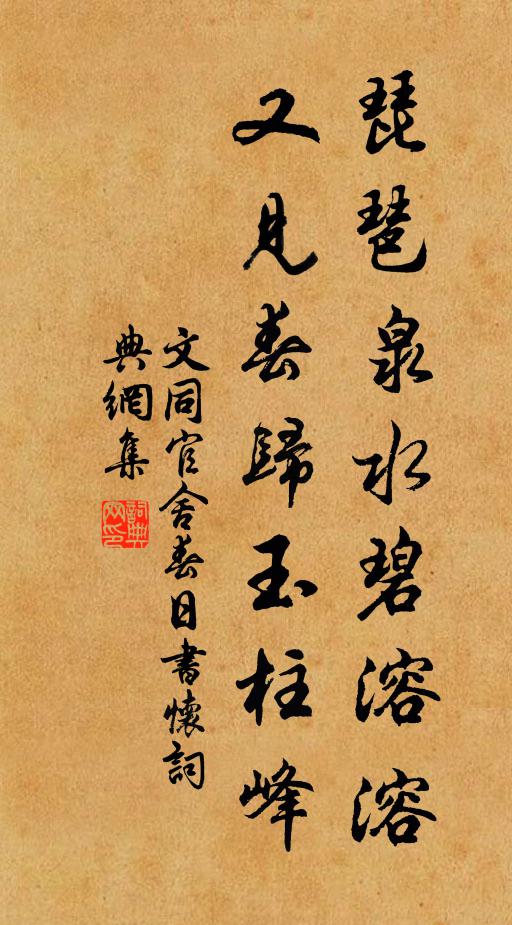 琵琶泉水碧溶溶
又見春歸玉柱峰
文同官舍春日書懷詞
典網集
詞典
網印